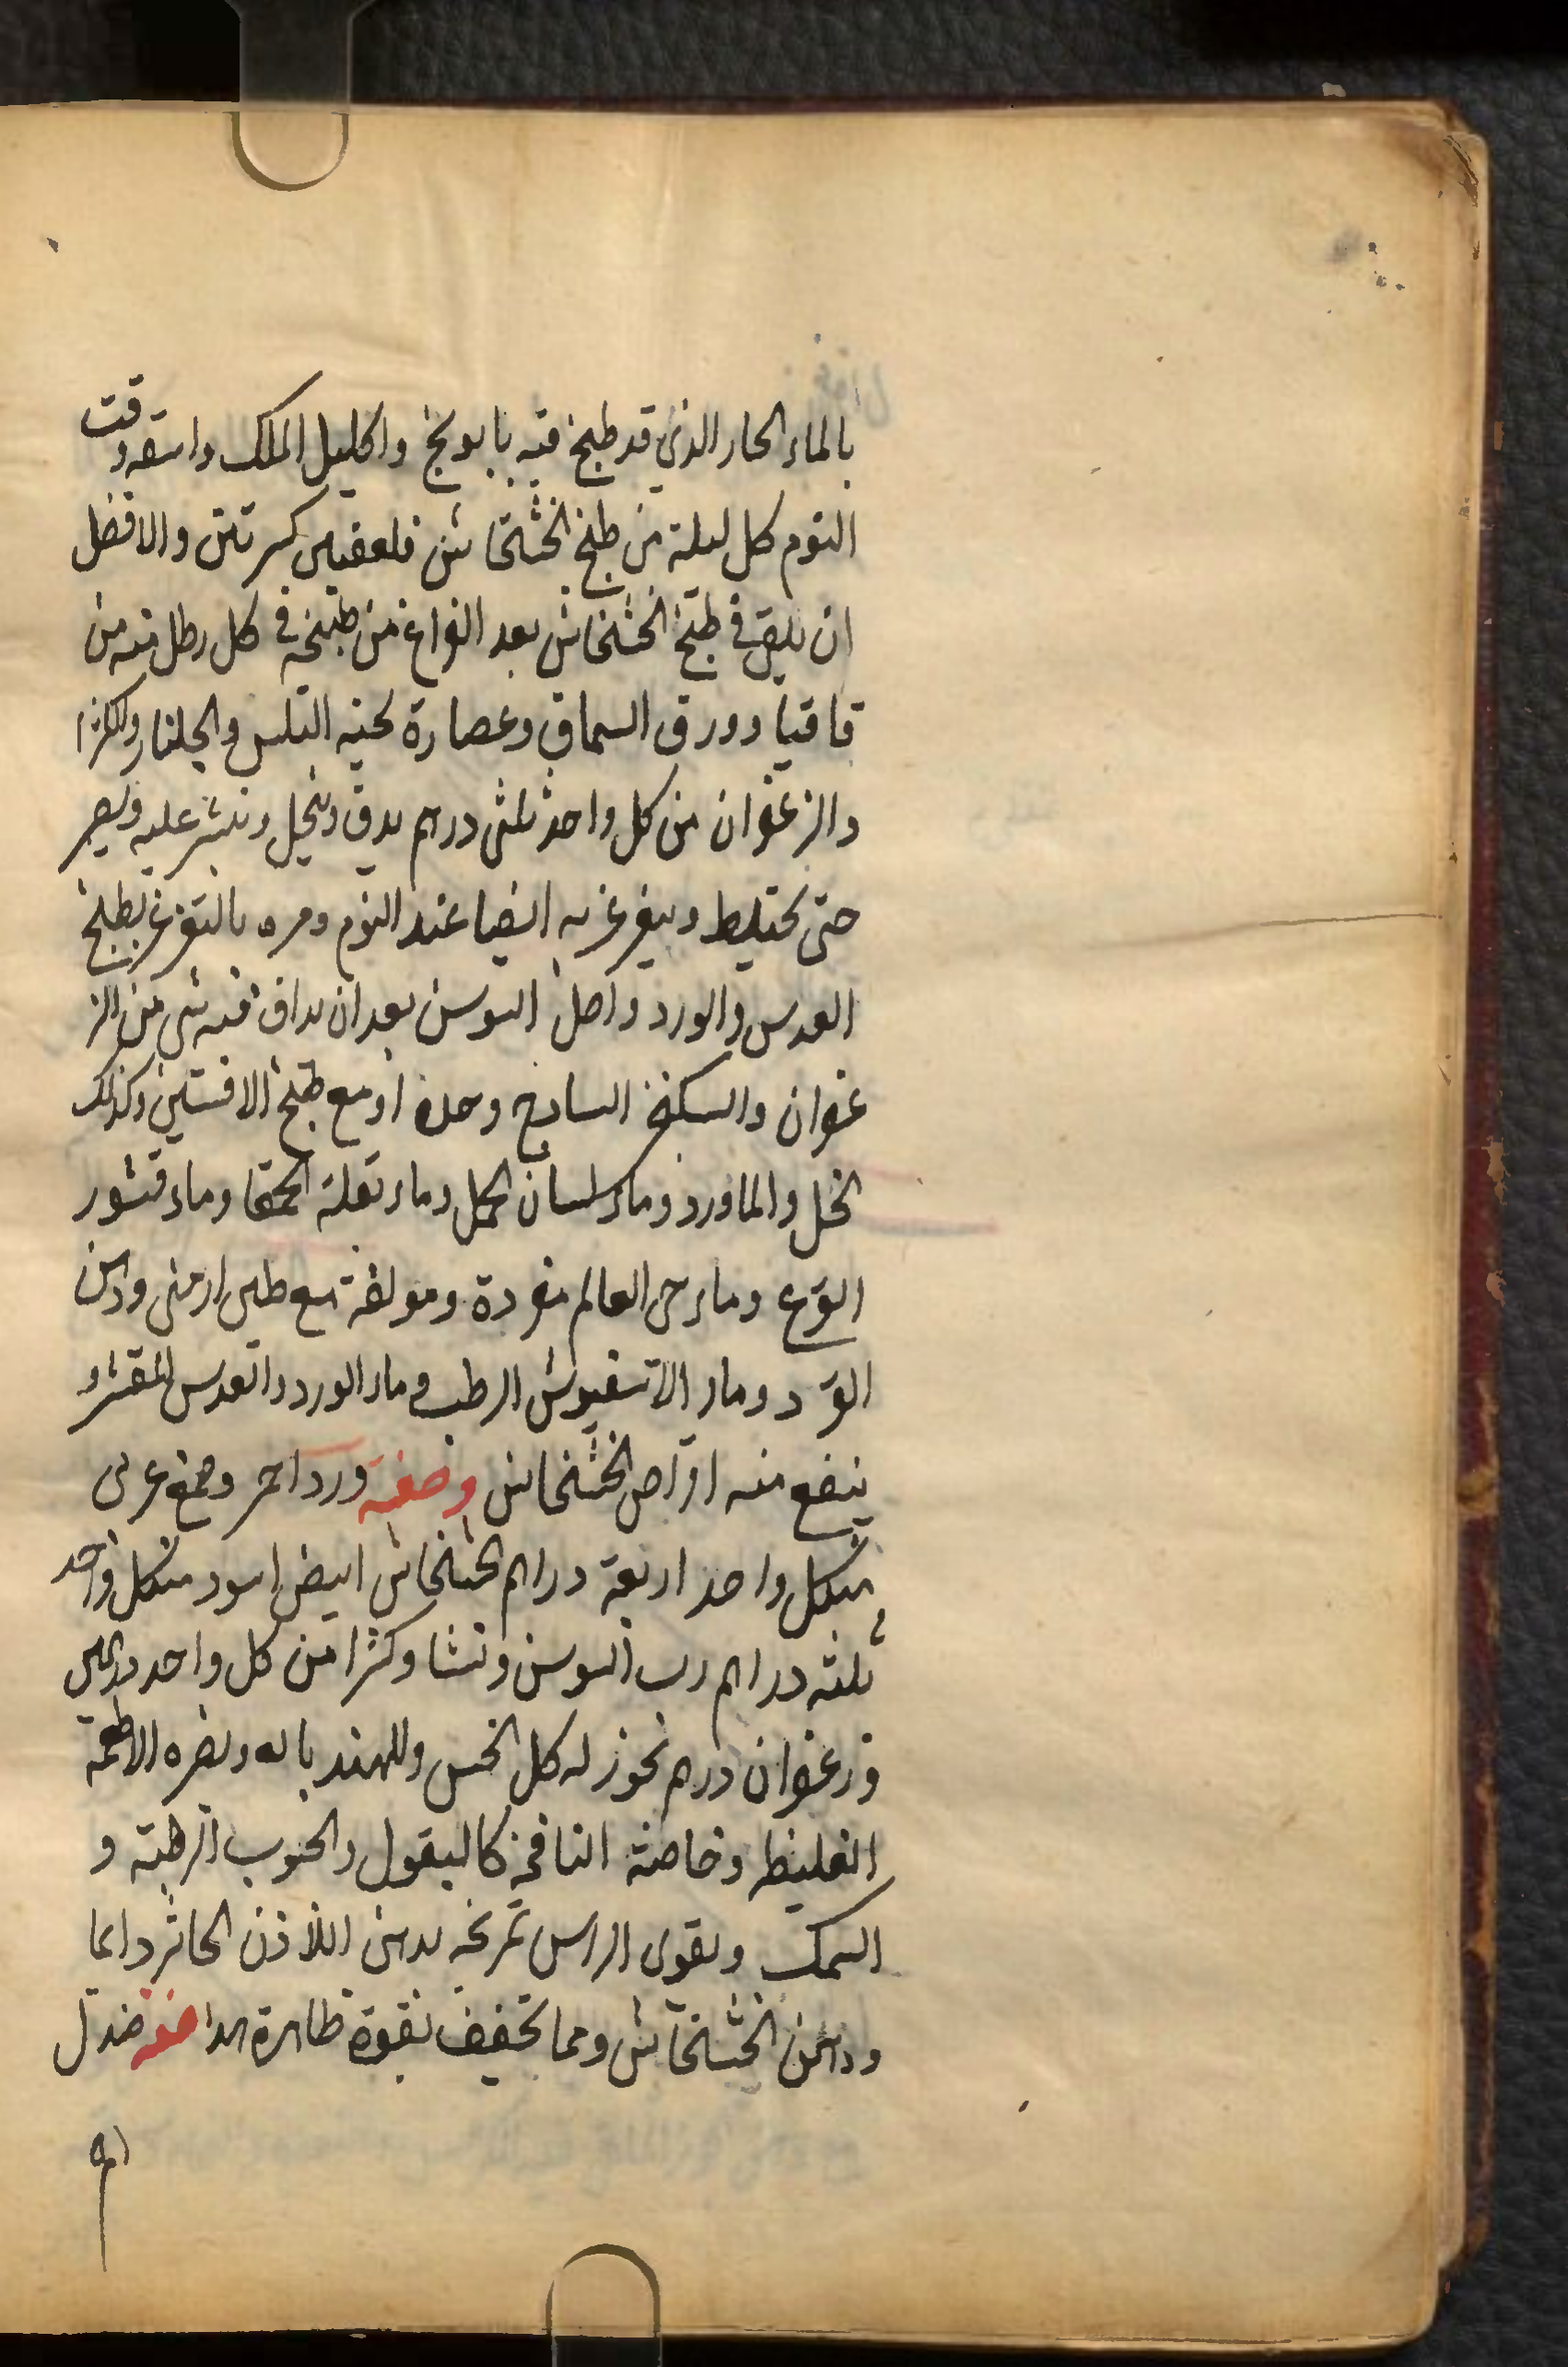 بالماء الحار الذي قد طبخ فيه بابونج واكليل الملك واسقه وقت
النوم كل ليلة من طبخ الخشخاش فلعقتين كبيرتين والافضل
ان يلقى في طبخ الخشخاش بعد الفراغ من طبخه في كل رطل منه من
قاقيا وورق السماق وعصارة لحية التيس والجلنار والكثيرا
والزعفران من كل واحد ثلثى درهم يدق وينخل وينثر عليه ويصبر
حتى يختلط ويغرغر به ايضا عند النوم ومره بالتغرغر بطبخ
العدس والورد واصل السوسن بعد ان يداف فيه شى من الز
عفران والسكنجبين الساذج وحده او مع طبخ الافستين وكذلك
الخل والماورد وماء لسان الحمل وماء بقلة الحمقا وماء قشور
القرع وماء حى العالم مفردة ومولفة مع طين ارمنى ودهن
الورد وماء الاسفيوش الرطب وماء الورد والعدس المقشر و
ينفع منه اقراص الخشخاش وصفته ورد احمر وصمغ عربى
منكل واحد اربعة دراهم خشخاش ابيض اسود منكل واحد
ثلثه دراهم رب السوسن ونشا وكثيرا من كل واحد درهمين
وزعفران درهم يجوز له كل الخس والهندباله ويضره الاطعمة
الغليظه وخاصة النافخة كالبقول والحبوب الرطبة و
السمك ويقوى الراس تمريخه بدهن اللاذن الحاثر دايما
ودهن الخشخاش ومما يخفف بقوة ظاهرة هذا صفته صندل